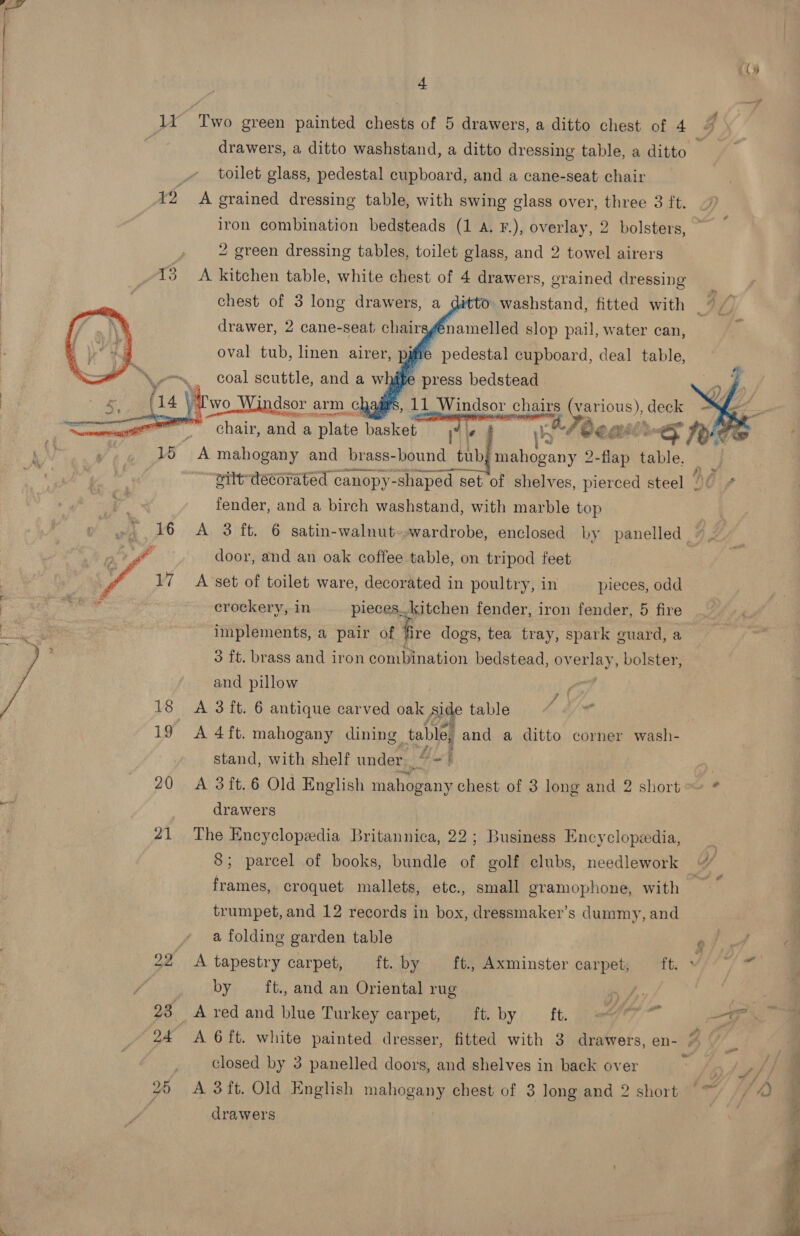 4
11 Two green painted chests of 5 drawers, a ditto chest of 4
drawers, a ditto washstand, a ditto dressing table, a ditto
toilet glass, pedestal cupboard, and a cane-seat chair
12 A grained dressing table, with swing glass over, three 3 ft.
iron combination bedsteads (1 A. F.), overlay, 2 bolsters,
2 green dressing tables, toilet glass, and 2 towel airers
13 A kitchen table, white chest of 4 drawers, grained dressing
chest of 3 long drawers, a ditto washstand, fitted with
drawer, 2 cane-seat chairs, enamelled slop pail, water can,
oval tub, linen airer, pine pedestal cupboard, deal table,
coal scuttle, and a white press bedstead
14 Two Windsor arm chairs, 11 Windsor chairs (various), deck
chair, and a plate basket
15 A mahogany and brass-bound tub, mahogany 2-flap table,
gilt-decorated canopy-shaped set of shelves, pierced steel
fender, and a birch washstand, with marble top
16 A 3 ft. 6 satin-walnut wardrobe, enclosed by panelled
door, and an oak coffee table, on tripod feet
17 A set of toilet ware, decorated in poultry, in pieces, odd
crockery, in pieces, kitchen fender, iron fender, 5 fire
implements, a pair of fire dogs, tea tray, spark guard, a
3 ft. brass and iron combination bedstead, overlay, bolster,
and pillow
18 A 3 ft. 6 antique carved oak side table
19 A 4 ft. mahogany dining table, and a ditto corner wash-
stand, with shelf under
20 A 3 ft. 6 Old English mahogany chest of 3 long and 2 short
drawers
21 The Encyclopædia Britannica, 22; Business Encyclopædia,
8; parcel of books, bundle of golf clubs, needlework
frames, croquet mallets, etc., small gramophone, with
trumpet, and 12 records in box, dressmaker's dummy, and
a folding garden table
22 A tapestry carpet, ft. by ft., Axminster carpet, ft.
by ft., and an Oriental rug
23 A red and blue Turkey carpet, ft. by ft.
24 A 6 ft. white painted dresser, fitted with 3 drawers, en-
closed by 3 panelled doors, and shelves in back over
25 A 3 ft. Old English mahogany chest of 3 long and 2 short
drawers